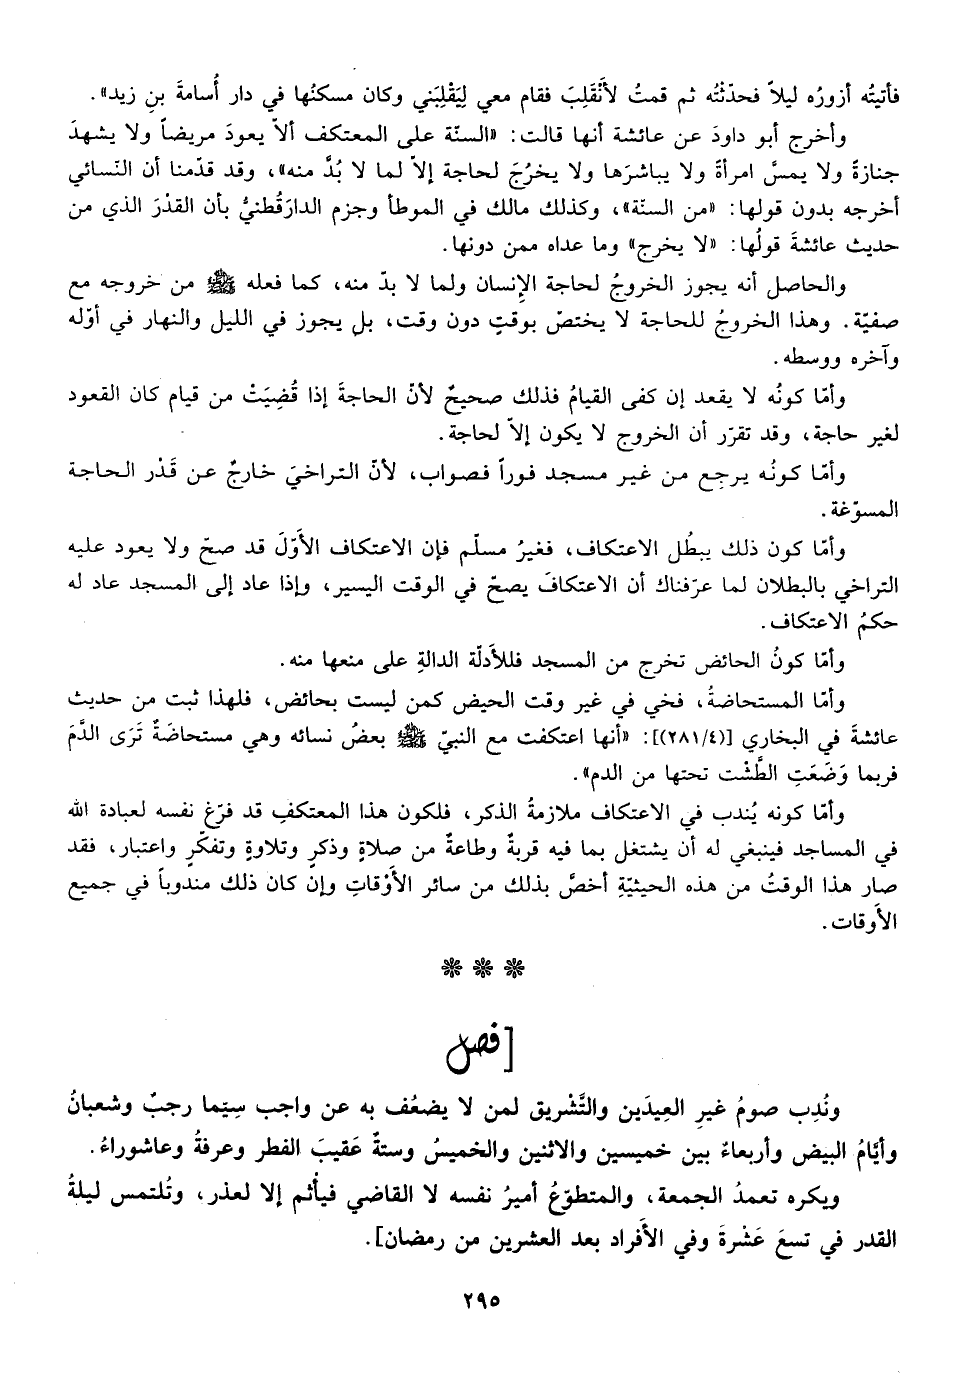 فأتيتُه أزورُه ليلاً فحدّثتُه ثم قمتُ لأنْقَلِبَ فقام معي لِيَقْلِبَني وكان مسكنُها في دار أُسامةَ بنِ زيد».
وأخرج أبو داودَ عن عائشة أنها قالت: «السنّة على المعتكف ألاّ يعودَ مريضاً ولا يشهدَ
جنازةً ولا يمسَّ امرأةً ولا يباشرَها ولا يخرُجَ لحاجة إلاّ لما لا بُدَّ منه»، وقد قدّمنا أن النّسائي
أخرجه بدون قولها: «من السنّة»، وكذلك مالك في الموطأ وجزم الدارَقُطنيُّ بأن القدْرَ الذي من
حديث عائشةَ قولُها: «لا يخرج» وما عداه ممن دونها.
والحاصل أنه يجوز الخروجُ لحاجة الإنسان ولما لا بدّ منه، كما فعله ﷺ من خروجه مع
صفيّة. وهذا الخروجُ للحاجة لا يختصّ بوقتٍ دون وقت، بل يجوز في الليل والنهار في أوّله
وآخره ووسطه.
وأمّا كونُه لا يقعد إن كفى القيامُ فذلك صحيحٌ لأنّ الحاجةَ إذا قُضِيَتْ من قيام كان القعود
لغير حاجة، وقد تقرّر أن الخروج لا يكون إلاّ لحاجة.
وأمّا كونُه يرجِع من غير مسجد فوراً فصواب، لأنّ التراخيَ خارجٌ عن قَدْر الحاجة
المسوّغة.
وأمّا كون ذلك يبطُل الاعتكاف، فغيرُ مسلّم فإن الاعتكاف الأوّلَ قد صحّ ولا يعود عليه
التراخي بالبطلان لما عرّفناك أن الاعتكافَ يصحّ في الوقت اليسير، وإذا عاد إلى المسجد عاد له
حكمُ الاعتكاف.
وأمّا كونُ الحائض تخرج من المسجد فللأدلّة الدالةِ على منعها منه.
وأمّا المستحاضةُ، فخي في غير وقت الحيض كمن ليست بحائض، فلهذا ثبت من حديث
عائشةَ في البخاري [(٢٨١/٤)]: «أنها اعتكفت مع النبيّ ﷺ بعضُ نسائه وهي مستحاضَةٌ تَرَى الدَّمَ
فربما وَضَعَتِ الطَّشْت تحتها من الدم».
وأمّا كونه يُندب في الاعتكاف ملازمةُ الذكر، فلكون هذا المعتكفِ قد فرّغ نفسه لعبادة الله
في المساجد فينبغي له أن يشتغل بما فيه قربةٌ وطاعةٌ من صلاةٍ وذكرٍ وتلاوةٍ وتفكّرٍ واعتبار، فقد
صار هذا الوقتُ من هذه الحيثيّةِ أخصَّ بذلك من سائر الأوْقاتِ وإن كان ذلك مندوباً في جميع
الأوقات.
[فصل
ونُدِب صومُ غيرِ العِيدَين والتَّشْريق لمن لا يضعُف به عن واجب سِيّما رجبٌ وشعبانُ
وأيّامُ البيض وأربعاءٌ بين خميسين والاثنين والخميسُ وستةٌ عَقيبَ الفطر وعرفةُ وعاشوراءُ.
ويكره تعمدُ الجمعة، والمتطوّعُ أميرُ نفسه لا القاضي فيأثم إلا لعذر، وتُلتمس ليلةُ
القدر في تسعَ عَشْرةَ وفي الأفراد بعد العشرين من رمضان].
٢٩٥